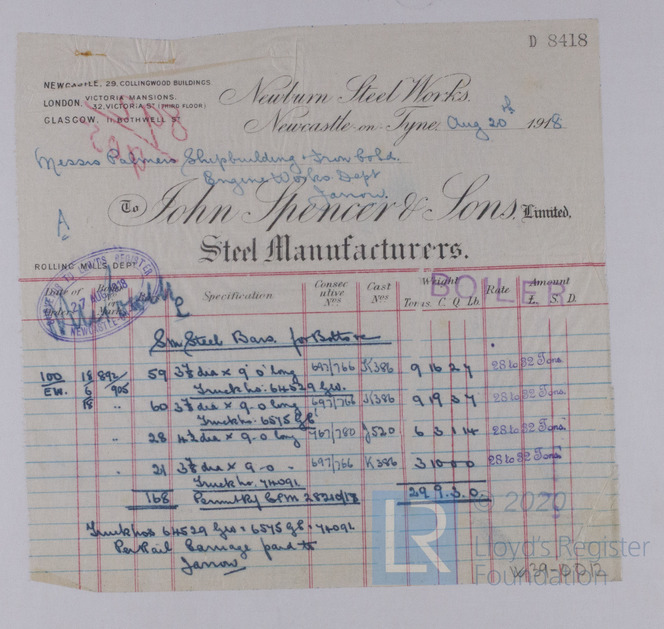 D 8418
NEWCASTLE, 29. COLLINGWOOD BUILDINGS.
LONDON, VICTORIA MANSIONS,
32. VICTORIA ST (THIRD FLOOR)
GLASGOW, 11. BOTHWELL ST
Newburn Steel Works.
Newcastle-on-Tyne, Aug 20th 1918
Messrs Palmers Shipbuilding & Iron Co Ltd.
Engine Works Dept
Jarrow.
A
To John Spencer & Sons, Limited,
Steel Manufacturers.
ROLLING MILLS DEPT
BOILER
Date of Order Specification Consecutive Nos Cast Nos Weight Tons. C. Q. Lb. Rate Amount £. S. D.
Sm Steel Bars for Bolts &c
100 18 892/ 59 9-0 long 697/766 K386 9 16 2 7 28 to 32 Tons
EW. 6 905 Truck No: 64529 GW.
18 " 60 dia x 9-0 long 697/766 K386 9 19 3 7 28 to 32 Tons
Truck No: 6575 GC
" 28 dia x 9-0 long 767/780 J520 6 3 1 14 28 to 32 Tons
" 21 dia x 9-0 " 697/766 K386 3 10 0 0 28 to 32 Tons
Truck No: 74092
168 29. 9. 3. 0.
Truck Nos 64529 GW: 6575 GC: 74092
Per Rail Carriage paid to
Jarrow
LR
© 2020
Lloyd's Register
Foundation
W29-0012